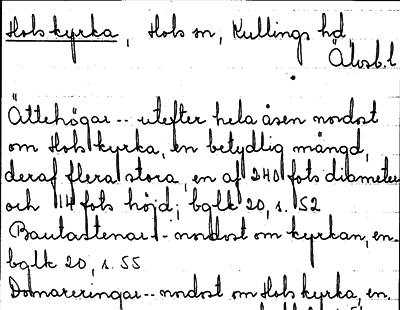 Hols kyrka, Hols sn, Kullings hd,
Älvsb.l
Ättehögar -- utefter hela åsen nordost
om Hols kyrka, en betydlig mängd,
deraf flera stora, en af 240 fots diameter
och 14 fots höjd; bglk 20, s. 52
Bautastenar - nordost om kyrkan, en.
bglk 20, s. 55
Domareringar -- nordost om Hols kyrka, en.